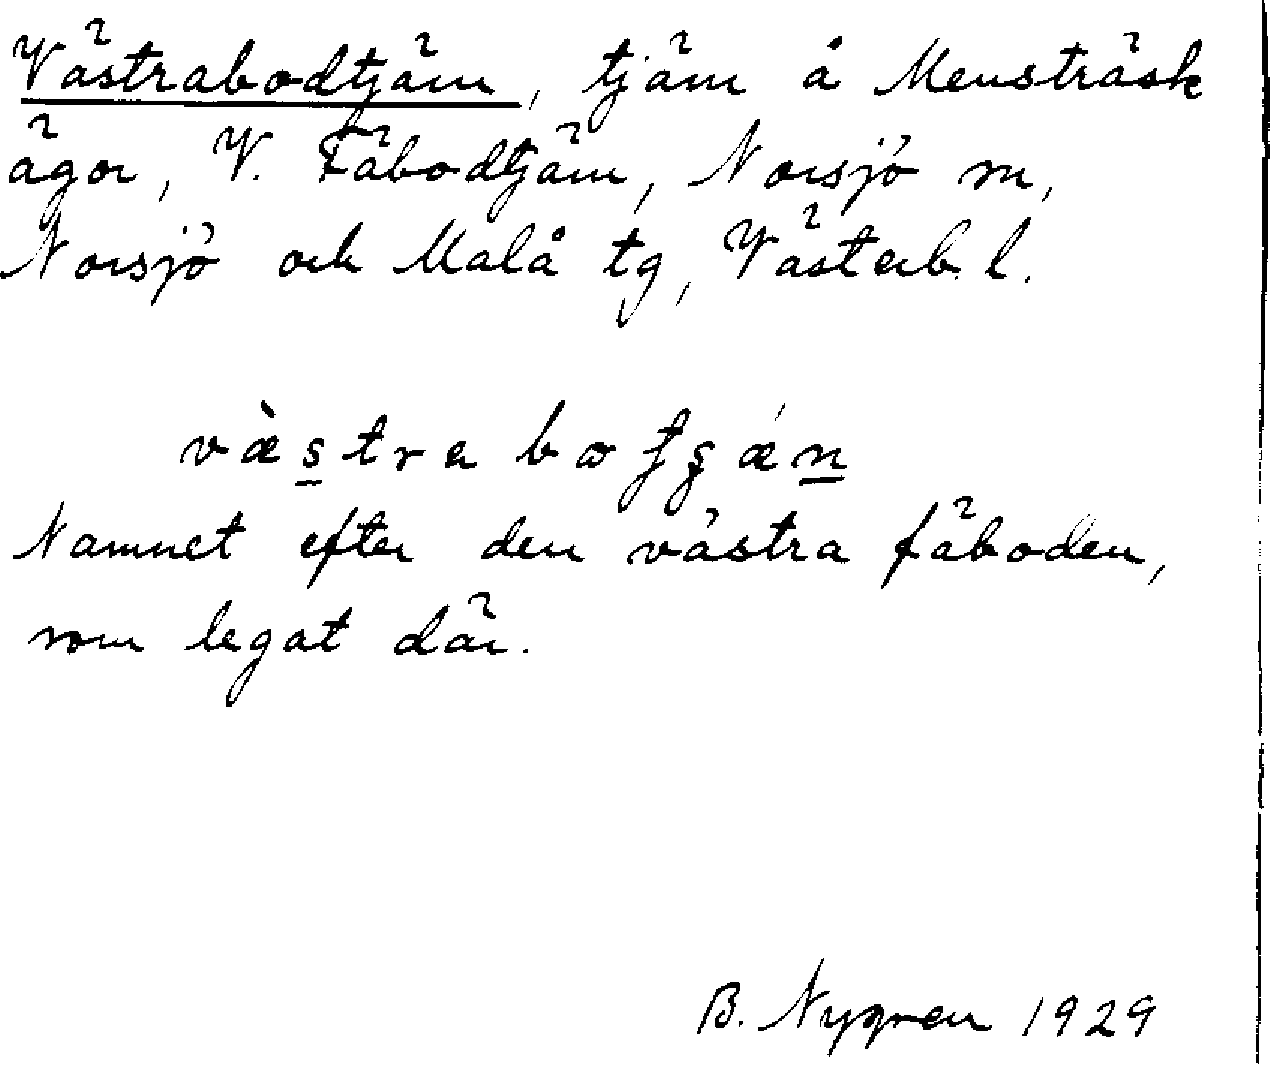 Västrabodtjärn, tjärn å Mensträsk
ägor, V. Fäbodtjärn, Norsjö sn,
Norsjö och Malå tg, Västerb. l.
Namnet efter den västra fäboden,
som legat där.
B. Nygren 1929